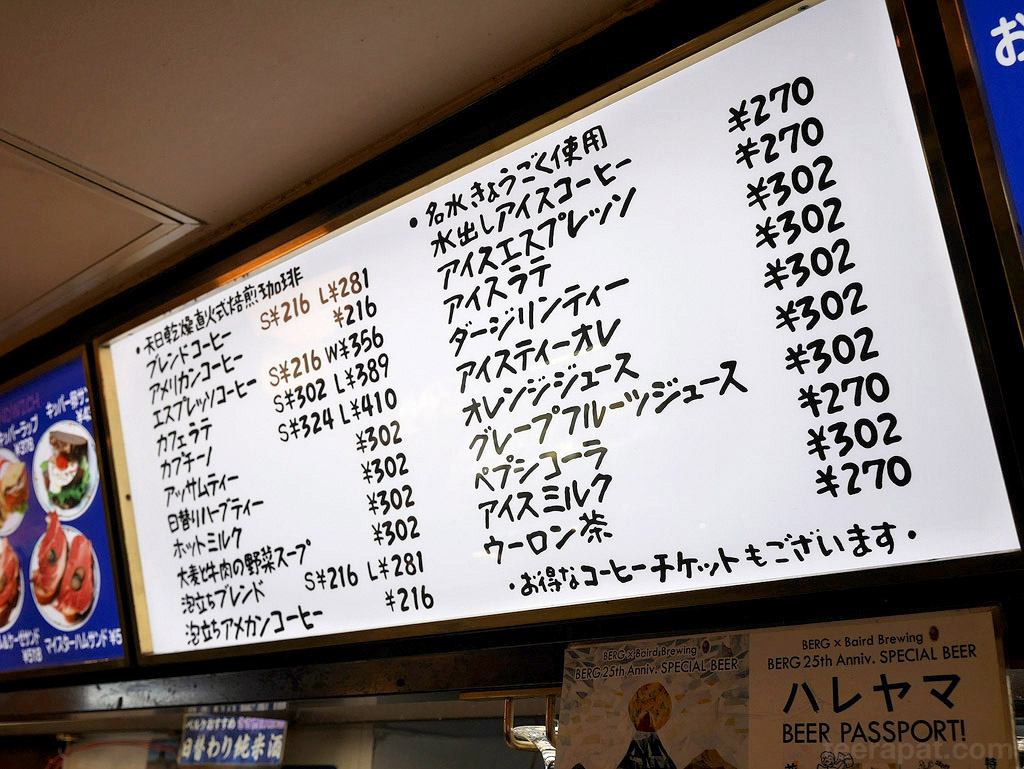 ・天日乾燥直火式焙煎珈琲
ブレンドコーヒー S¥216 L¥281
アメリカンコーヒー ¥216
エスプレッソコーヒー S¥216 W¥356
カフェラテ S¥302 L¥389
カプチーノ S¥324 L¥410
アッサムティー ¥302
日替りハーブティー ¥302
ホットミルク ¥302
大麦と牛肉の野菜スープ ¥302
泡立ちブレンド S¥216 L¥281
泡立ちアメカンコーヒー ¥216
・名水きょうごく使用
水出しアイスコーヒー ¥270
アイスエスプレッソ ¥270
アイスラテ ¥302
ダージリンティー ¥302
アイスティーオレ ¥302
オレンジジュース ¥302
グレープフルーツジュース ¥302
ペプシコーラ ¥270
アイスミルク ¥302
ウーロン茶 ¥270
・お得なコーヒーチケットもございます・
お
キッパーラップ
¥378
マイスターハムサンド ¥5
¥518
ベルクおすすめ
日替わり純米酒
BERG × Baird Brewing
BERG 25th Anniv. SPECIAL BEER
BERG × Baird Brewing
BERG 25th Anniv. SPECIAL BEER
ハレヤマ
BEER PASSPORT!
eerapat.com